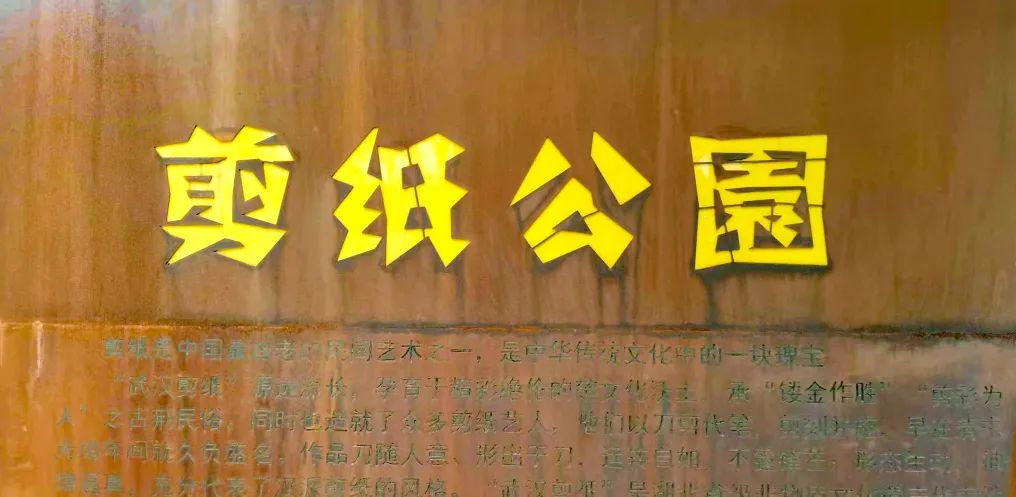 剪纸公園
剪纸是中国最古老的民间艺术之一，是中华传统文化中的一块瑰宝
“武汉剪纸”源远流长，孕育于精彩绝伦的楚文化沃土，承“镂金作胜”“剪彩为
人”之古荆民俗，同时也造就了众多剪纸艺人，他们以刀剪代笔，剪刻并施，早在清
年间就久负盛名。作品刀随人意、形出于刀、运转自如、不显锋芒、形态生动、
充分代表了 剪纸的风格。“武汉剪纸”